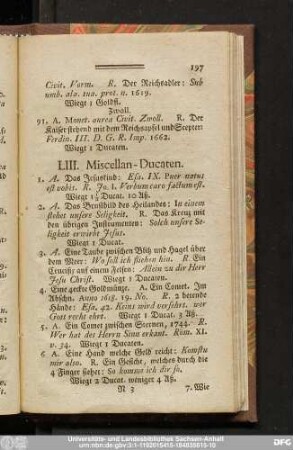 197
Civit. Vorm. R. Der Reichsadler: Sub
umb. alar. tuar. prot. n. 1619.
Wiegt 1 Goldfl.
Zwoll.
91. A. Monet. aurea Civit. Zwoll. R. Der
Kaiser stehend mit dem Reichsapfel und Scepter:
Ferdin. III. D. G. R. Imp. 1662.
Wiegt 1 Ducaten.
LIII. Miscellan-Ducaten.
1. A. Das Jesuskind: Esa. IX. Puer natus
est vobis. R. Jo. I. Verbum caro factum est.
Wiegt 1½ Ducat. 10 Aß.
2. A. Das Brustbild des Heilandes: In einem
stehet unsere Seligkeit. R. Das Kreuz mit
den übrigen Instrumenten: Solch unsere Se-
ligkeit erwirbt Jesus.
Wiegt 1 Ducat.
3. A. Eine Taube zwischen Blitz und Hagel über
dem Meer: Wo soll ich fliehen hin. R. Ein
Crucifix auf einem Felsen: Allein zu dir Herr
Jesu Christ. Wiegt 1 Ducaten.
4. Eine Goldmünze. A. Ein Comet. Im
Abschn. Anno 1618. 19. No. R. 2 betende
Hände: Esa. 42. Keins wird versehrt, wer
Gott recht ehrt. Wiegt 1 Ducat. 3 Aß.
5. A. Ein Comet zwischen Sternen, 1744. R.
Wer hat des Herrn Sinn erkant. Röm. XI.
v. 34. Wiegt 1 Ducaten.
6 A. Eine Hand welche Geld reicht: Komstu
mir also. R. Ein Gesicht, welches durch die
4 Finger siehet: So komme ich dir so.
Wiegt 2 Ducat. weniger 4 Aß.
N 3 7. Wie
Universitäts- und Landesbibliothek Sachsen-Anhalt
urn:nbn:de:gbv:3:1-1192015415-184635810-10
DFG